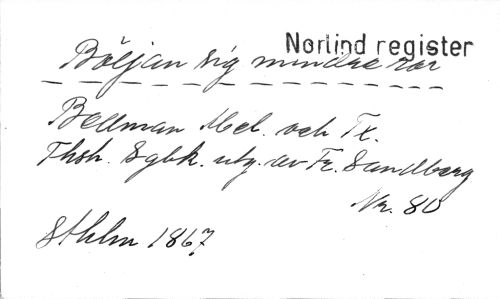 Norlind register
Böljan sig mindre rör
Bellman Mel. och Tx.
Thsh. Sgbk. utg. av Fr. Sandberg
Nr. 80
Sthlm 1867